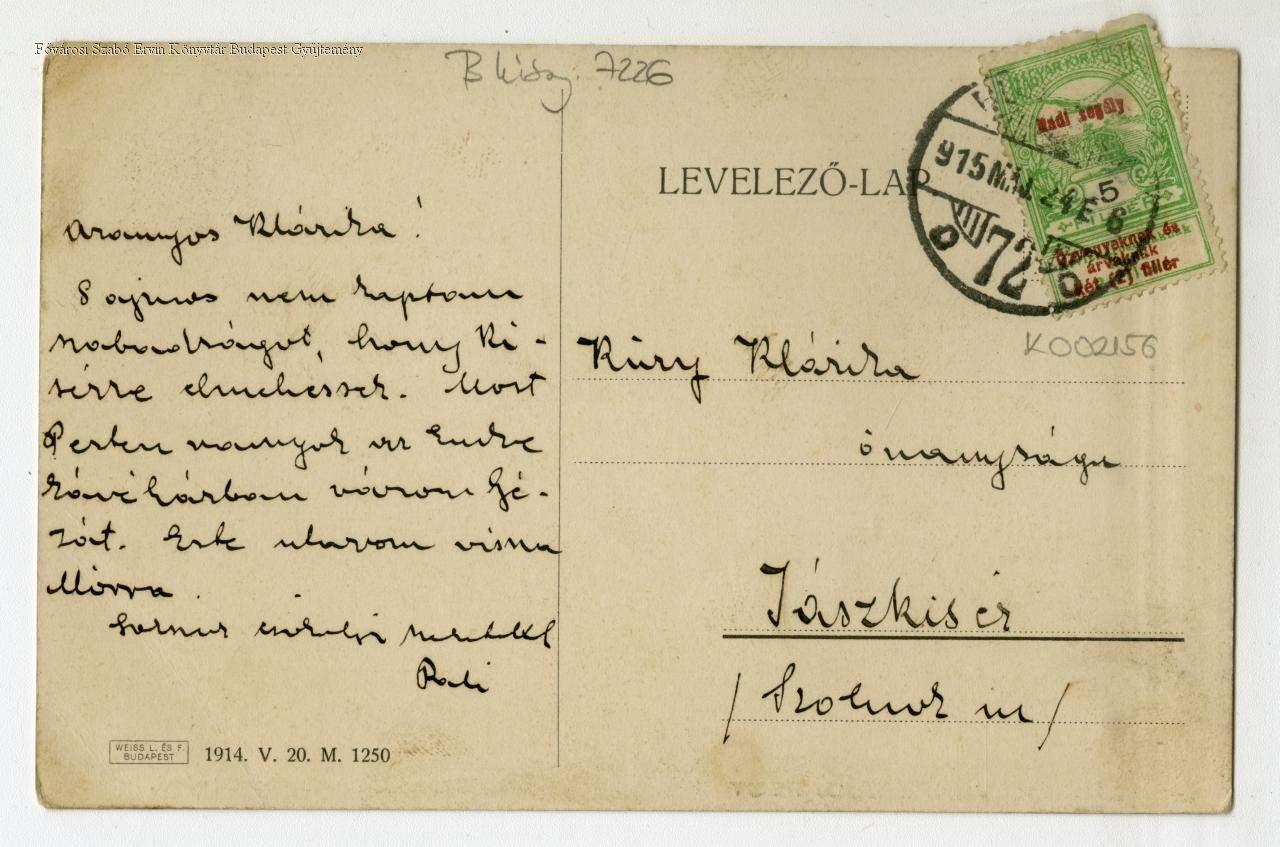 Fővárosi Szabó Ervin Könyvtár Budapest Gyűjtemény
7226
LEVELEZŐ-LAP
MAGYAR KIR. POSTA
Hadi segély
5
FILLÉR
Özvegyeknek és
árváknak
két (2) fillér
915 MÁJ 24 E 6
VIII
72
K002156
Aranyos Klárika!
Sajnos nem kaptam
szabadságot, hogy Ki-
sérre elmehessek. Most
Pesten vagyok az Emke
kávéházban várom Gé-
zát. Este utazom vissza
csókolja szeretettel
Pali
Küry Klárika
őnagysága
Jászkisér
/Szolnok m/
WEISS L. ÉS F.
BUDAPEST
1914. V. 20. M. 1250